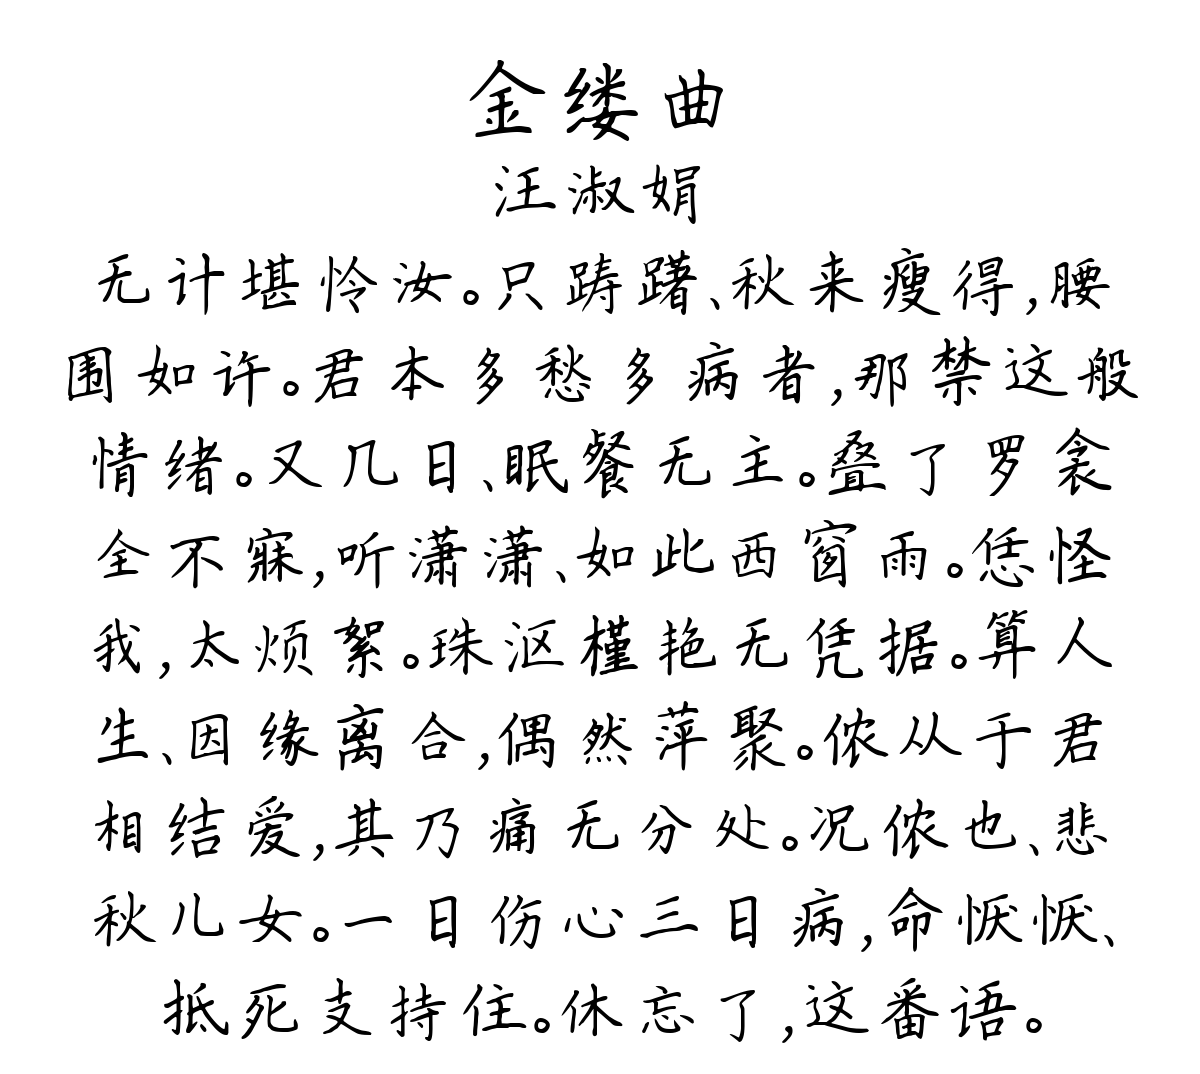 金缕曲
汪淑娟
无计堪怜汝。只踌躇、秋来瘦得,腰
围如许。君本多愁多病者,那禁这般
情绪。又几日、眠餐无主。叠了罗衾
全不寐,听潇潇、如此西窗雨。恁怪
我,太烦絮。珠沤槿艳无凭据。算人
生、因缘离合,偶然萍聚。侬从于君
相结爱,其乃痛无分处。况侬也、悲
秋儿女。一日伤心三日病,命恹恹、
抵死支持住。休忘了,这番语。